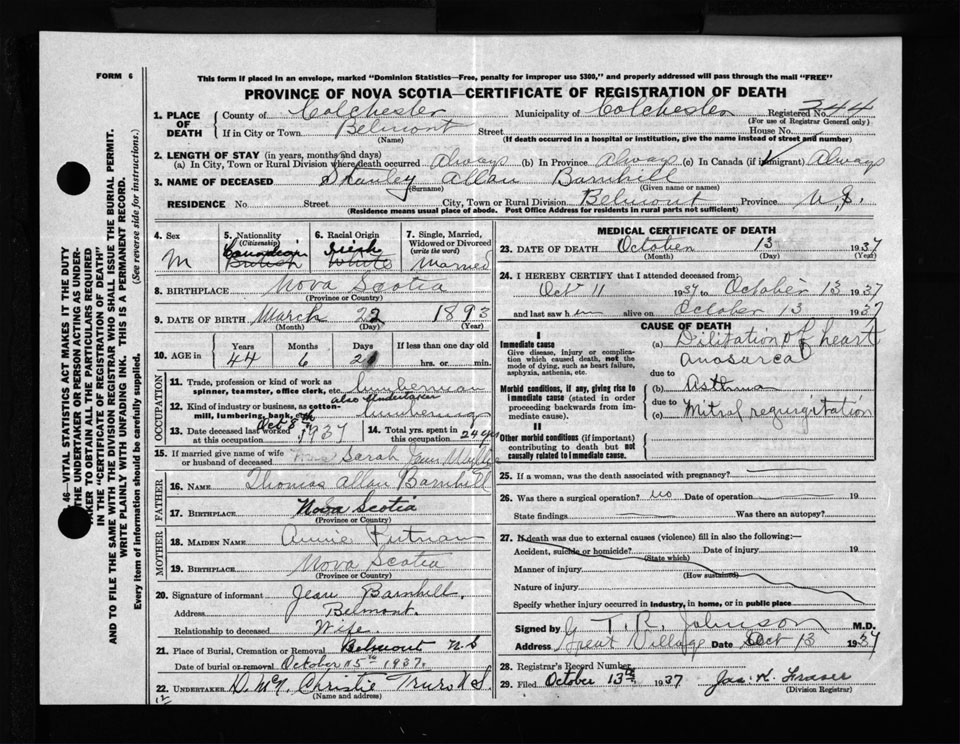 FORM 6
This form if placed in an envelope, marked "Dominion Statistics—Free, penalty for improper use $300," and properly addressed will pass through the mail "FREE"
PROVINCE OF NOVA SCOTIA—CERTIFICATE OF REGISTRATION OF DEATH
1. PLACE OF DEATH County of Colchester Municipality of Colchester Registered No. 344
(For use of Registrar General only)
If in City or Town Belmont Street House No.
(Name) (If death occurred in a hospital or institution, give the name instead of street and number)
2. LENGTH OF STAY (in years, months and days)
(a) In City, Town or Rural Division where death occurred Always (b) In Province Always (c) In Canada (if immigrant) Always
3. NAME OF DECEASED Stanley Allan Barnhill
(Surname) (Given name or names)
RESIDENCE No. Street City, Town or Rural Division Belmont Province N.S.
(Residence means usual place of abode. Post Office Address for residents in rural parts not sufficient)
4. Sex 5. Nationality (Citizenship) 6. Racial Origin 7. Single, Married, Widowed or Divorced (write the word)
M Canadian British Irish White Married
8. BIRTHPLACE Nova Scotia
(Province or Country)
9. DATE OF BIRTH March 22 1893
(Month) (Day) (Year)
10. AGE in Years Months Days If less than one day old
44 6 21 hrs. or min.
OCCUPATION
11. Trade, profession or kind of work as spinner, teamster, office clerk, etc. Lumberman
also Undertaker
12. Kind of industry or business, as cotton-mill, lumbering, bank, etc. Lumbering
13. Date deceased last worked at this occupation Oct 8th 1937 14. Total yrs. spent in this occupation 24
15. If married give name of wife or husband of deceased Sarah Jean
FATHER
16. NAME Thomas Allan Barnhill
17. BIRTHPLACE Nova Scotia
(Province or Country)
MOTHER
18. MAIDEN NAME Annie Putnam
19. BIRTHPLACE Nova Scotia
(Province or Country)
20. Signature of informant Jean Barnhill.
Address Belmont.
Relationship to deceased Wife.
21. Place of Burial, Cremation or Removal Belmont N S
Date of burial or removal October 15th 1937.
22. UNDERTAKER Christie Truro N.S.
(Name and address)
12
MEDICAL CERTIFICATE OF DEATH
23. DATE OF DEATH October 13 1937
(Month) (Day) (Year)
24. I HEREBY CERTIFY that I attended deceased from:
Oct 11 1937 to October 13 1937
and last saw him alive on October 13 1937
CAUSE OF DEATH
I
Immediate cause
Give disease, injury or complication which caused death, not the mode of dying, such as heart failure, asphyxia, asthenia, etc.
(a) Dilitation of heart
anasarca
due to
Morbid conditions, if any, giving rise to immediate cause (stated in order proceeding backwards from immediate cause).
(b) Asthma
due to
(c) Mitral regurgitation
II
Other morbid conditions (if important) contributing to death but not causally related to immediate cause.
25. If a woman, was the death associated with pregnancy?
26. Was there a surgical operation? no Date of operation 19
State findings Was there an autopsy?
27. If death was due to external causes (violence) fill in also the following:—
Accident, suicide or homicide? Date of injury 19
(State which)
Manner of injury
(How sustained)
Nature of injury
Specify whether injury occurred in industry, in home, or in public place
Signed by T. R. Johnson M.D.
Address Great Village Date Oct 13 1937
28. Registrar's Record Number
29. Filed October 13th 1937 Jas. K. Fraser
(Division Registrar)
46—VITAL STATISTICS ACT MAKES IT THE DUTY
THE UNDERTAKER OR PERSON ACTING AS UNDER-
TAKER TO OBTAIN ALL THE PARTICULARS REQUIRED
IN THE "CERTIFICATE OF REGISTRATION OF DEATH"
AND TO FILE THE SAME WITH THE DIVISION REGISTRAR WHO SHALL ISSUE THE BURIAL PERMIT.
WRITE PLAINLY WITH UNFADING INK. THIS IS A PERMANENT RECORD.
Every item of information should be carefully supplied. (See reverse side for instructions.)